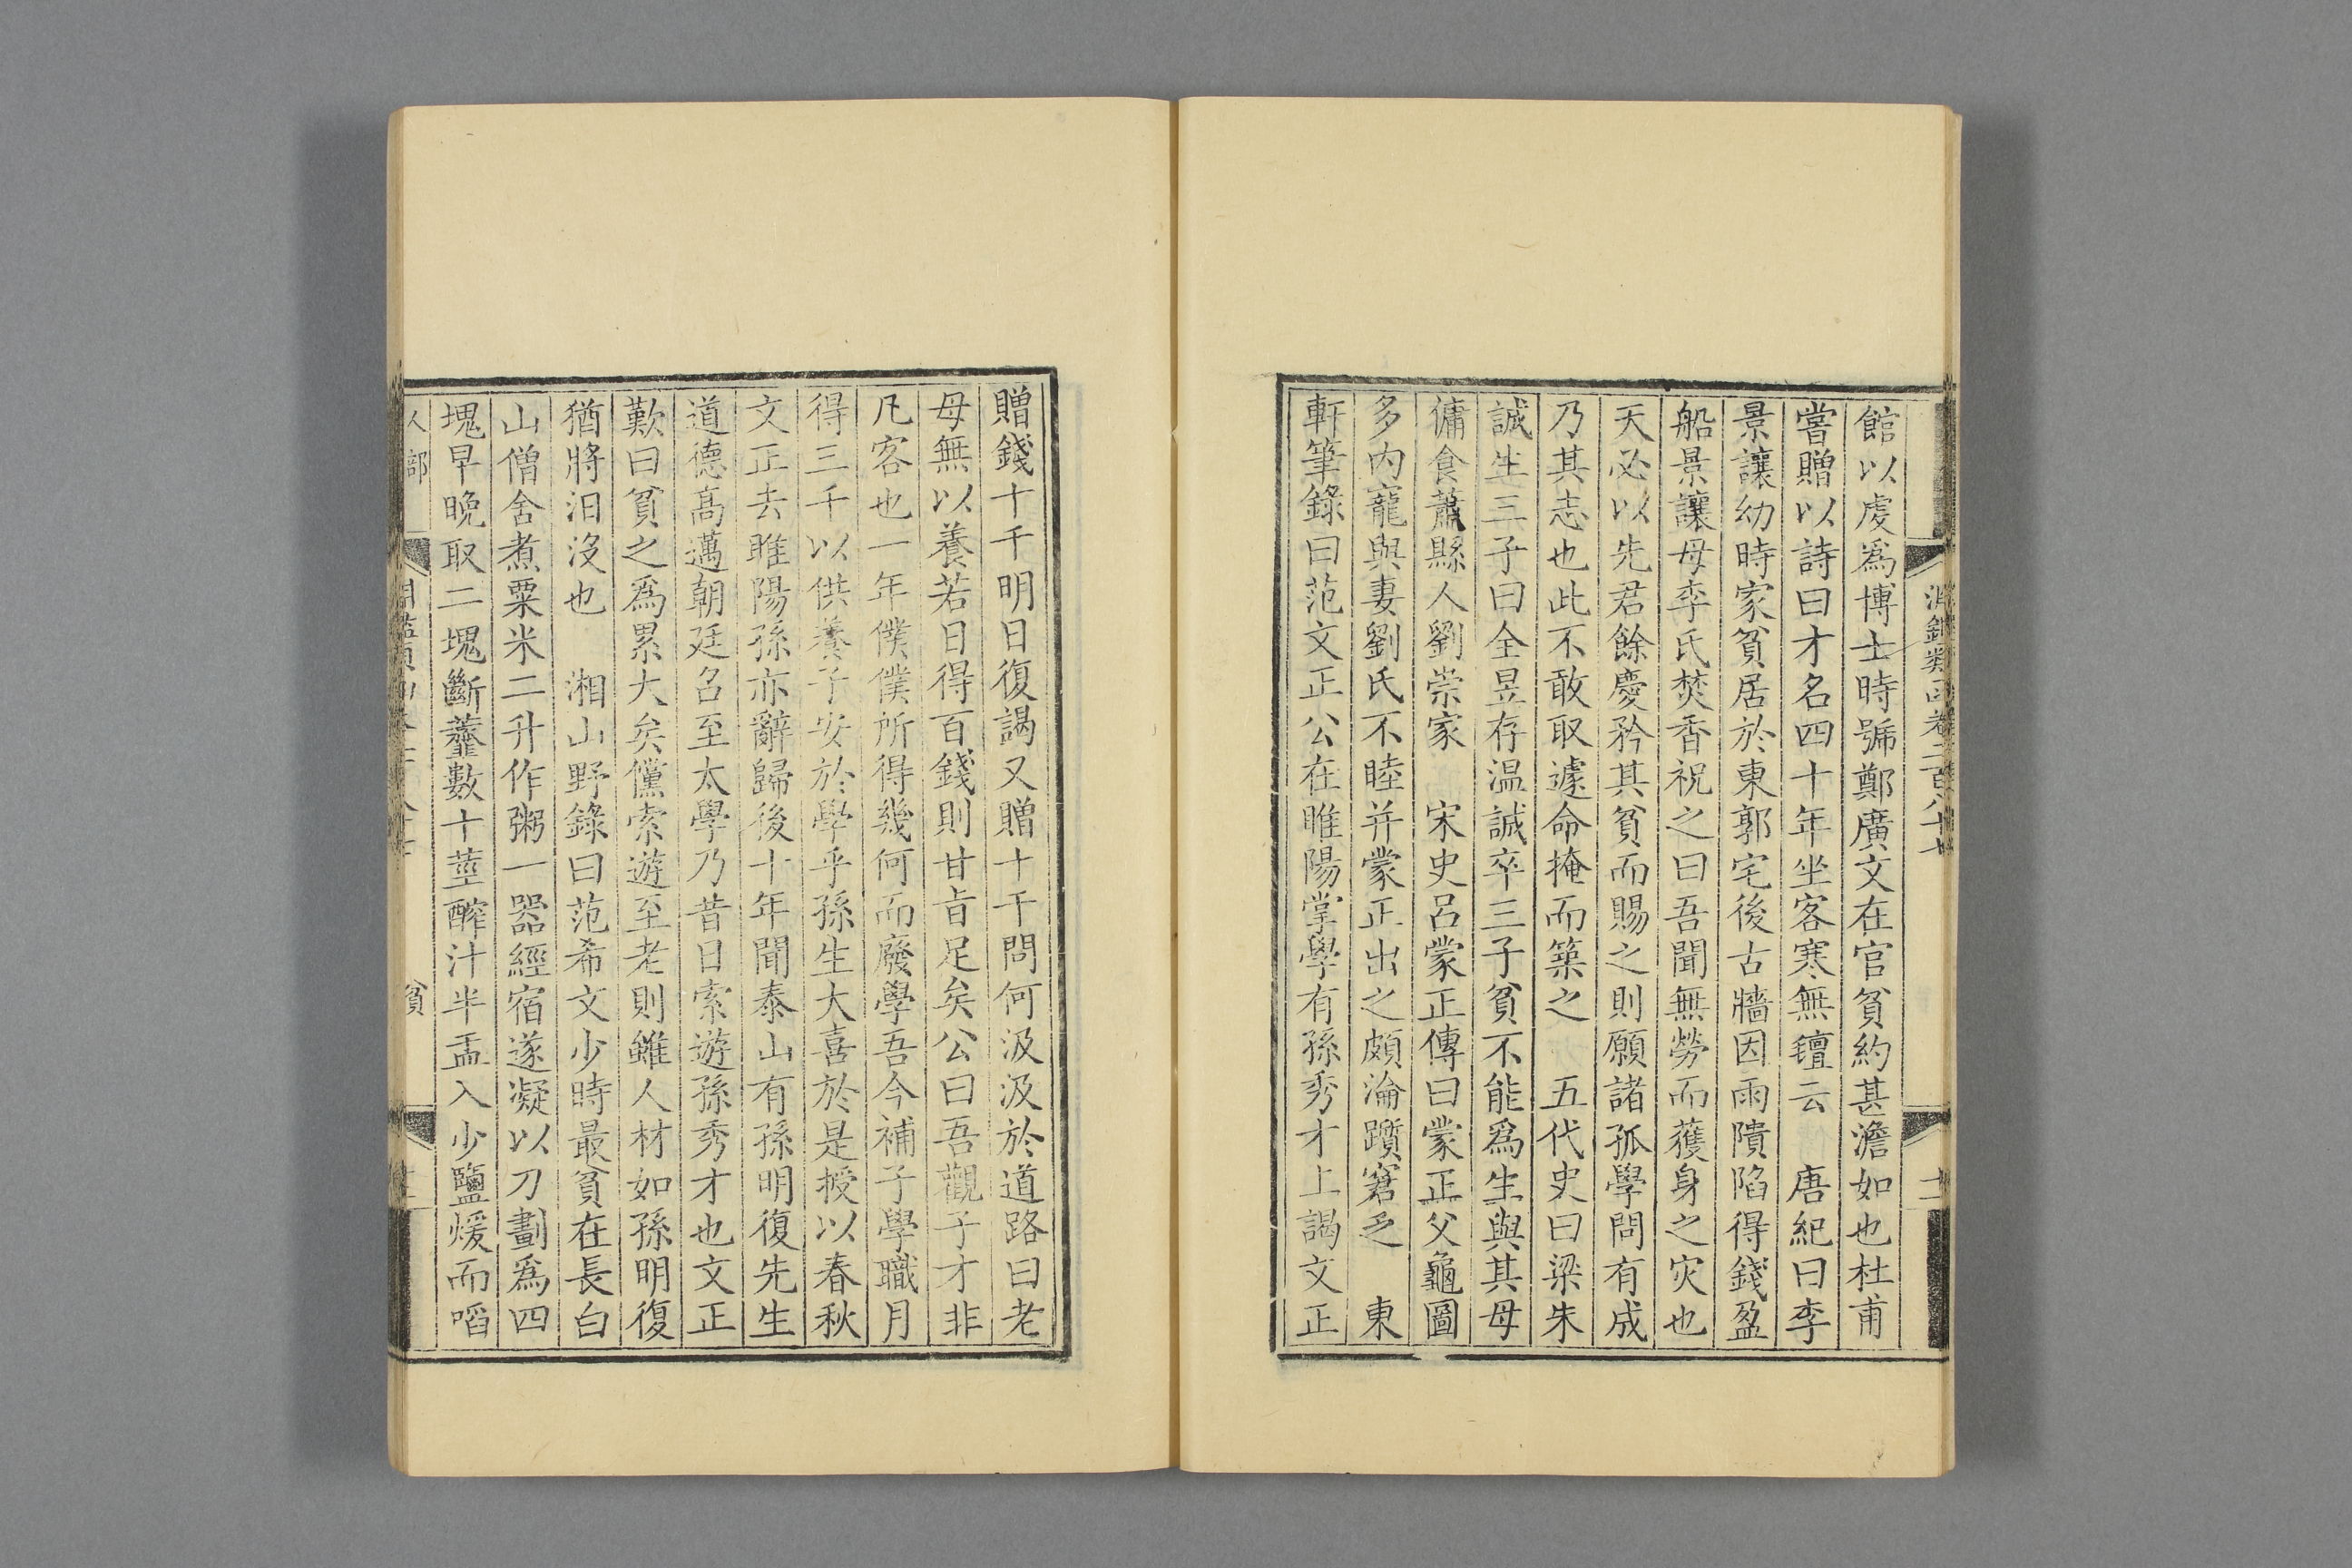 淵鑑類函卷二百八十七
館以䖍爲博士時號鄭廣文在官貧約甚澹如也杜甫
嘗贈以詩曰才名四十年坐客寒無氊云　唐紀曰李
景讓幼時家貧居於東郭宅後古牆因雨隤陷得錢盈
船景讓母李氏焚香祝之曰吾聞無勞而獲身之灾也
天必以先君餘慶矜其貧而賜之則願諸孤學問有成
乃其志也此不敢取遽命掩而築之　五代史曰梁朱
誠生三子曰全昱存温誠卒三子貧不能爲生與其母
傭食蕭縣人劉崇家　宋史呂蒙正傳曰蒙正父龜圖
多內寵與妻劉氏不睦并蒙正出之頗淪躓窘乏　東
軒筆錄曰范文正公在睢陽掌學有孫秀才上謁文正
贈錢十千明日復謁又贈十千問何汲汲於道路曰老
母無以養若日得百錢則甘旨足矣公曰吾觀子才非
凡客也一年僕僕所得幾何而廢學吾今補子學職月
得三千以供養子安於學乎孫生大喜於是授以春秋
文正去睢陽孫亦辭歸後十年聞泰山有孫明復先生
道德高邁朝廷召至太學乃昔日索遊孫秀才也文正
歎曰貧之爲累大矣儻索遊至老則雖人材如孫明復
猶將汨沒也　湘山野錄曰范希文少時最貧在長白
山僧舍煮粟米二升作粥一器經宿遂凝以刀劃爲四
塊早晚取二塊斷虀數十莖酢汁半盂入少鹽煖而啗
人部　貧